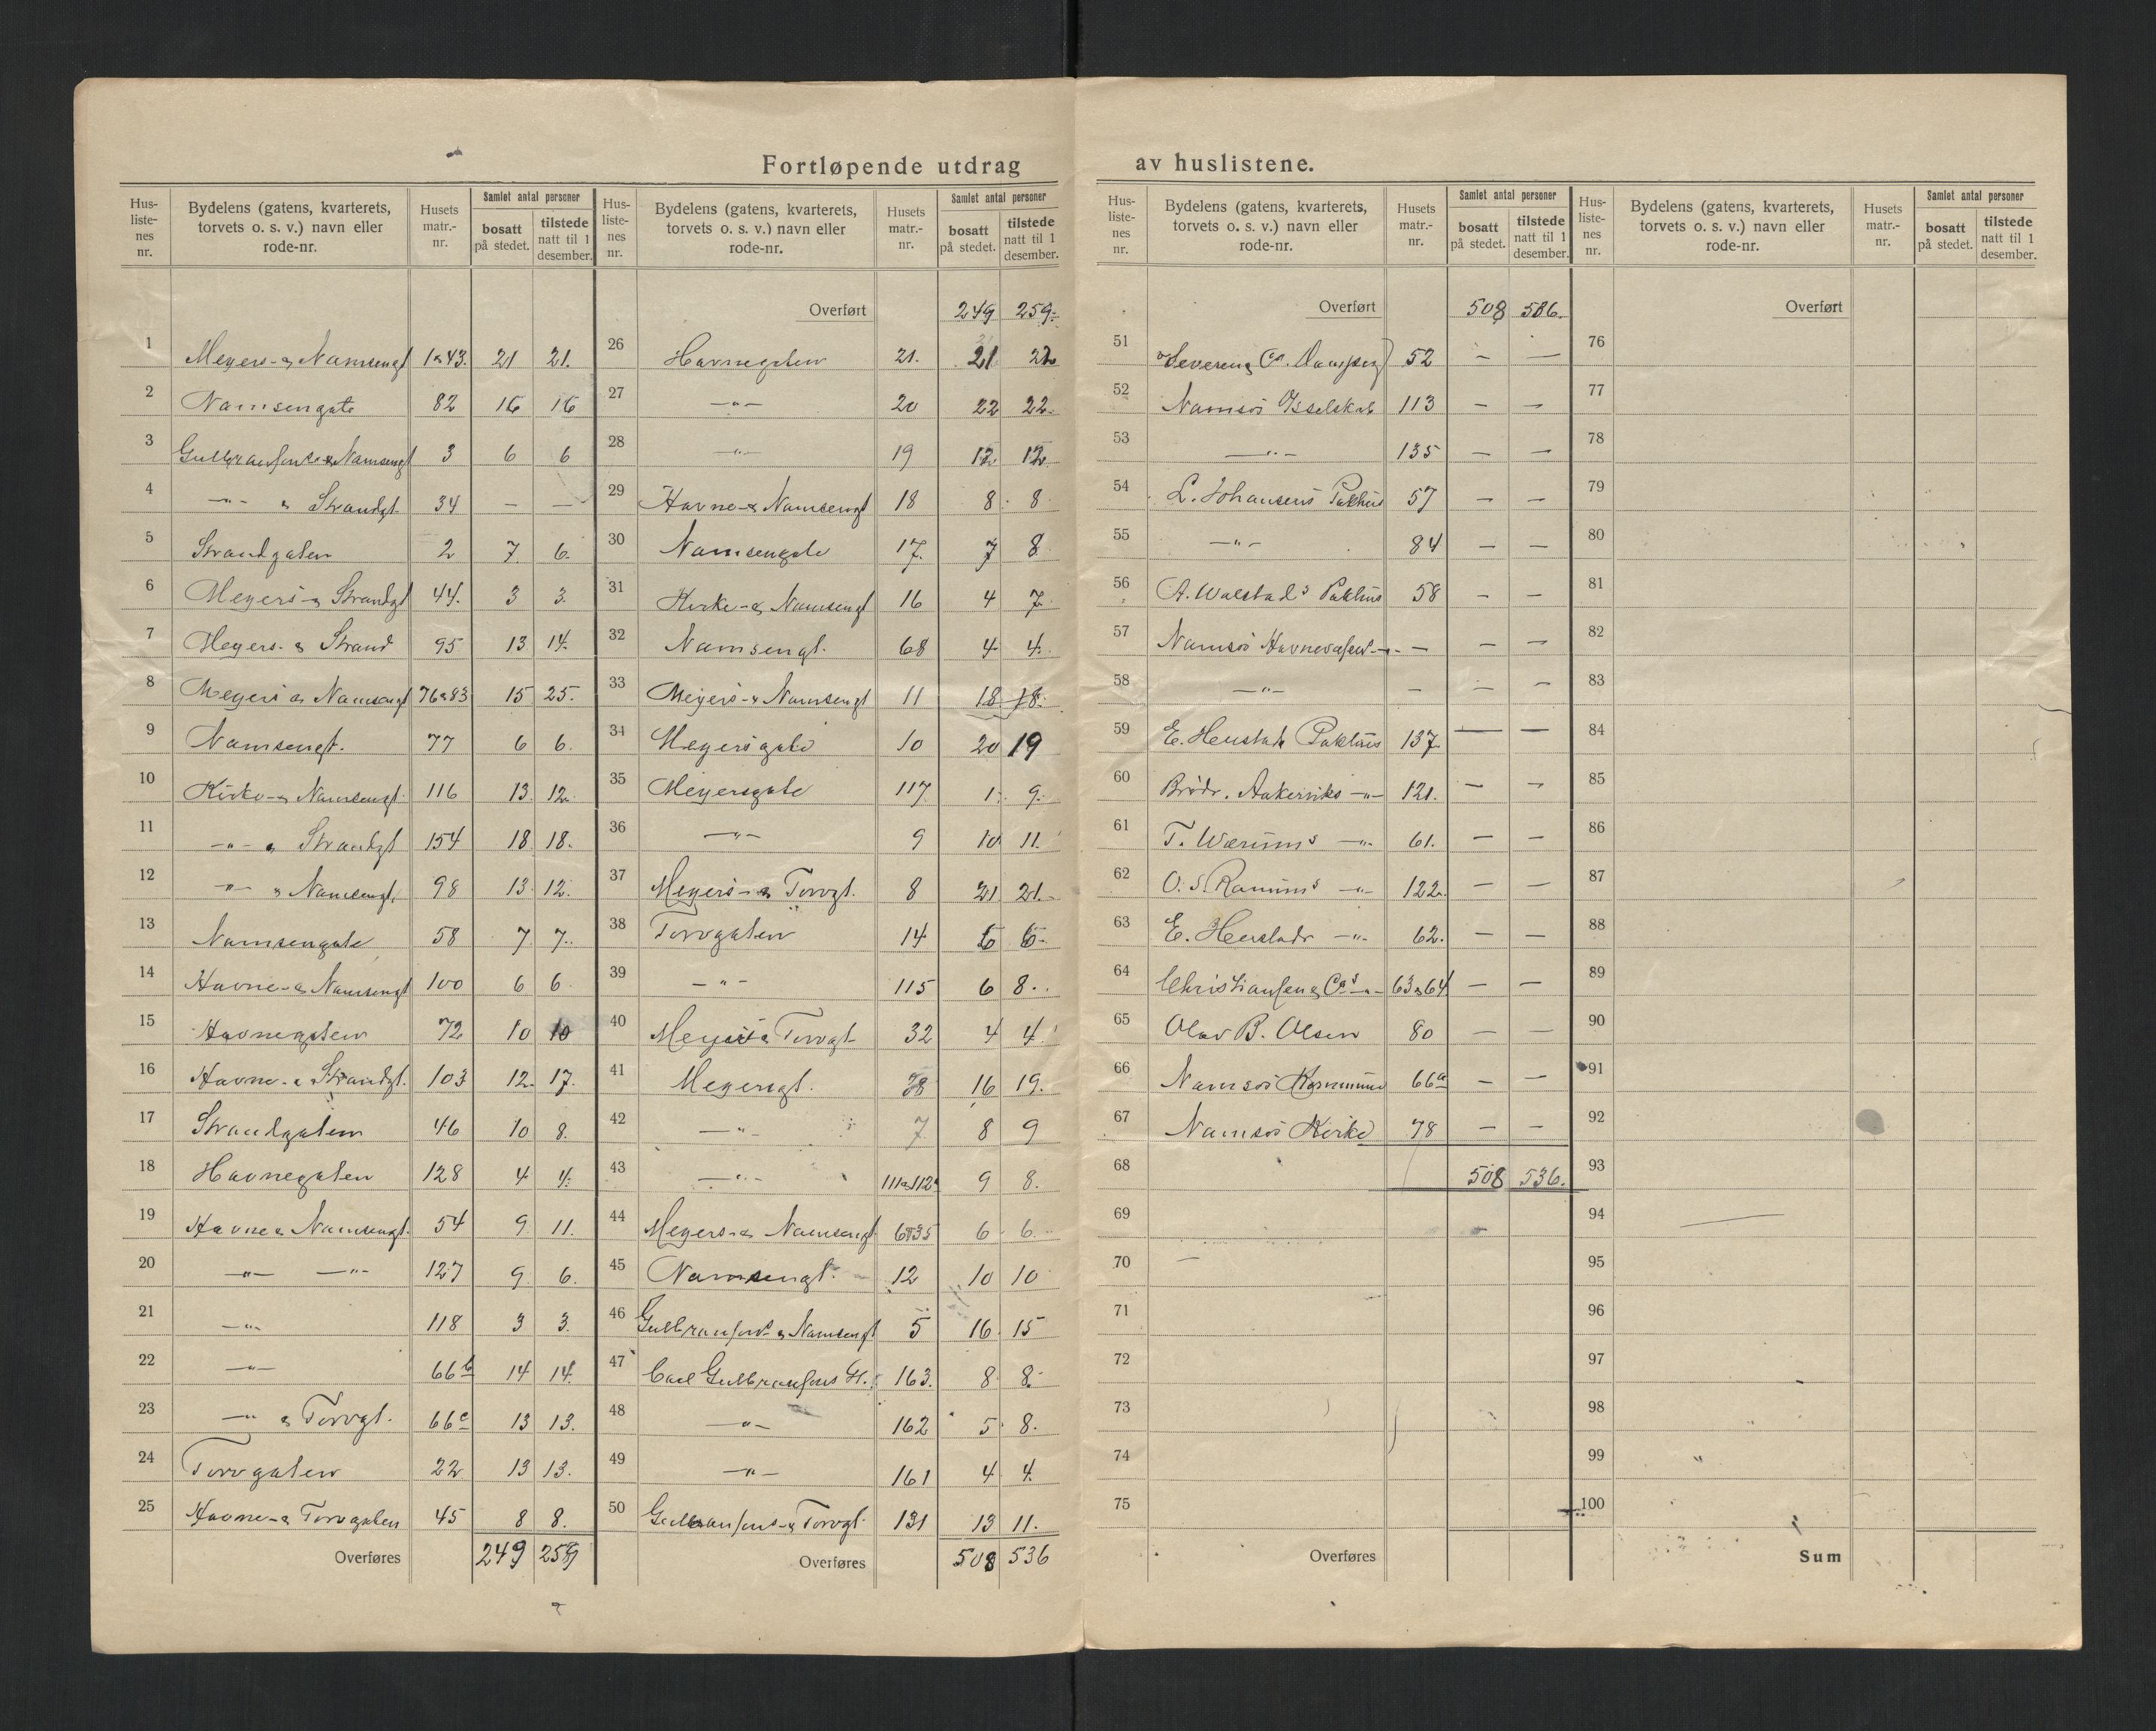 Fortløpende utdrag av huslistene.
Hus-liste-nes nr. | Bydelens (gatens, kvarterets, torvets o. s. v.) navn eller rode-nr. | Husets matr.-nr. | Samlet antal personer bosatt på stedet. | tilstede natt til 1 desember.
1 Meyers- & Namsengt 1 & 43. 21 21.
2 Namsengate 82 16 16
3 Gulbransens & Namsengt 3 6 6
4 —"— & Strandgt. 34 — —
5 Strandgaten 2 7. 6.
6 Meyers- & Strandgt 44. 3 3.
7 Meyers- & Strand 95 13 14.
8 Meyers & Namsengt 76 & 83 15 25.
9 Namsengt. 77 6 6.
10 Kirke- & Namsengt. 116 13. 12.
11 —"— & Strandgt 154 18 18.
12 —"— & Namsengt. 98 13 12.
13 Namsengate 58 7. 7.
14 Havne- & Namsengt 100 6 6
15 Havnegaten 72 10 10
16 Havne- & Strandgt. 103 12. 17.
17 Strandgaten 46 10 8.
18 Havnegaten 128 4 4.
19 Havne & Namsengt. 54 9 11.
20 —"— —"— 127 9 6.
21 —"— 118 3 3.
22 —"— 66b 14 14.
23 —"— & Torvgt. 66c 13 13.
24 Torvgaten 22 13 13.
25 Havne- & Torvgaten 45 8 8.
Overføres 249 259
Hus-liste-nes nr. | Bydelens (gatens, kvarterets, torvets o. s. v.) navn eller rode-nr. | Husets matr.-nr. | Samlet antal personer bosatt på stedet. | tilstede natt til 1 desember.
Overført 249 259.
26 Havnegaten 21. 21 22
27 —"— 20 22 22.
28 —"— 19 12 12
29 Havne- & Namsengt 18 8. 8
30 Namsengate 17. 7 8
31 Kirke- & Namsengt 16 4 7
32 Namsengt. 68 4 4.
33 Meyers- & Namsengt 11 18 18.
34 Meyersgate 10 20 19
35 Meyersgate 117 1. 9.
36 —"— 9 10 11.
37 Meyers- & Torvgt. 8 21 21.
38 Torvgaten 14 6 6.
39 —"— 115 6 8.
40 Meyers & Torvgt. 32 4 4.
41 Meyersgt. 16 19.
42 —"— 7 8 9
43 —"— 111 & 112 9 8.
44 Meyers- & Namsengt 6 & 35 6 6.
45 Namsengt. 12 10 10
46 Gulbransens & Namsengt 5 16 15
47 Carl Gulbransons 163. 8 8.
48 —"— 162 5 8.
49 —"— 161 4 4.
50 Gulbransens- & Torvgt. 131 13 11.
Overføres 508 536
Hus-liste-nes nr. | Bydelens (gatens, kvarterets, torvets o. s. v.) navn eller rode-nr. | Husets matr.-nr. | Samlet antal personer bosatt på stedet. | tilstede natt til 1 desember.
Overført 508 536.
51 52 — —
52 Namsos 113 — —
53 —"— 135 — —
54 L. Johansens Pakhus 57 — —
55 —"— 84 — —
56 A. Walstads Pakhus 58 — —
57 Namsos Havnevæsen — — —
58 —"— — — —
59 Pakhus 137. — —
60 Brødr. Aakerviks —"— 121. — —
61 T. Wærums —"— 61. — —
62 O. S. Ranums —"— 122. — —
63 —"— 62. — —
64 Christiansen & Cos —"— 63 & 64 — —
65 Olav B. Olsen 80 — —
66 Namsos Kommune 66a — —
67 Namsos Kirke 78 — —
68 508 536.
69
70
71
72
73
74
75
Overføres
Hus-liste-nes nr. | Bydelens (gatens, kvarterets, torvets o. s. v.) navn eller rode-nr. | Husets matr.-nr. | Samlet antal personer bosatt på stedet. | tilstede natt til 1 desember.
Overført
76
77
78
79
80
81
82
83
84
85
86
87
88
89
90
91
92
93
94
95
96
97
98
99
100
Sum